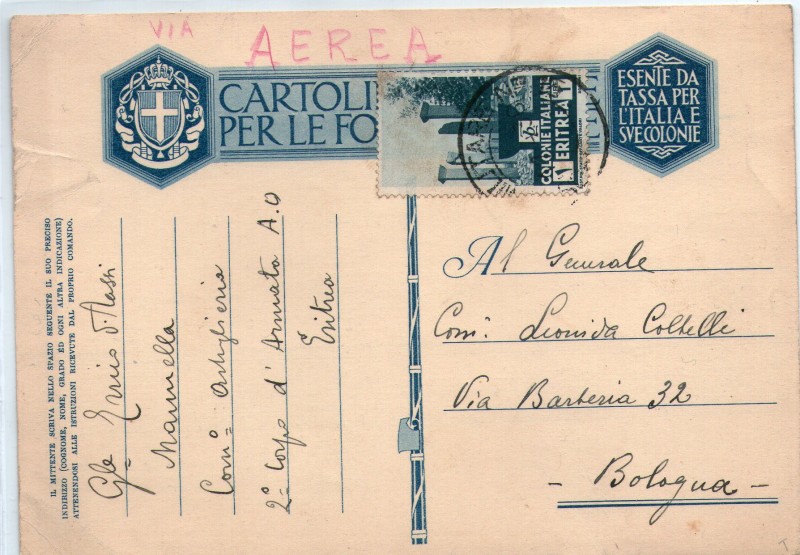 VIA AEREA
CARTOLI
PER LE FO
ESENTE DA
TASSA PER
L'ITALIA E
SVE COLONIE
COLONIE ITALIANE
1 ERITREA 1
Al Generale
Com: Leonida Coltelli
Via Barberia 32
- Bologna -
IL MITTENTE SCRIVA NELLO SPAZIO SEGUENTE IL SUO PRECISO
INDIRIZZO (COGNOME, NOME, GRADO ED OGNI ALTRA INDICAZIONE)
ATTENENDOSI ALLE ISTRUZIONI RICEVUTE DAL PROPRIO COMANDO.
Gle Ennio
Mannella
Com: Artiglieria
2° Corpo d'Armata A.O
Eritrea